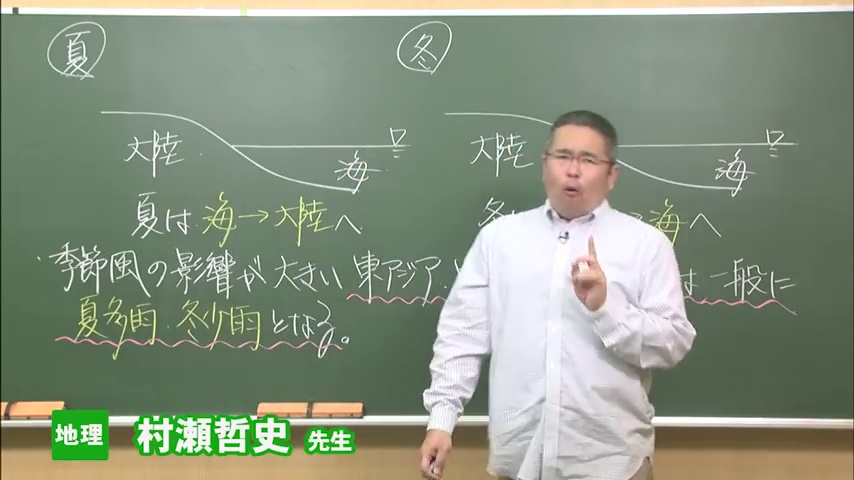 夏
冬
大陸
海
大陸
海
夏は 海→大陸へ
海へ
・季節風の影響が大きい東アジア・
は一般に
夏多雨・冬少雨となる。
地理 村瀬哲史 先生